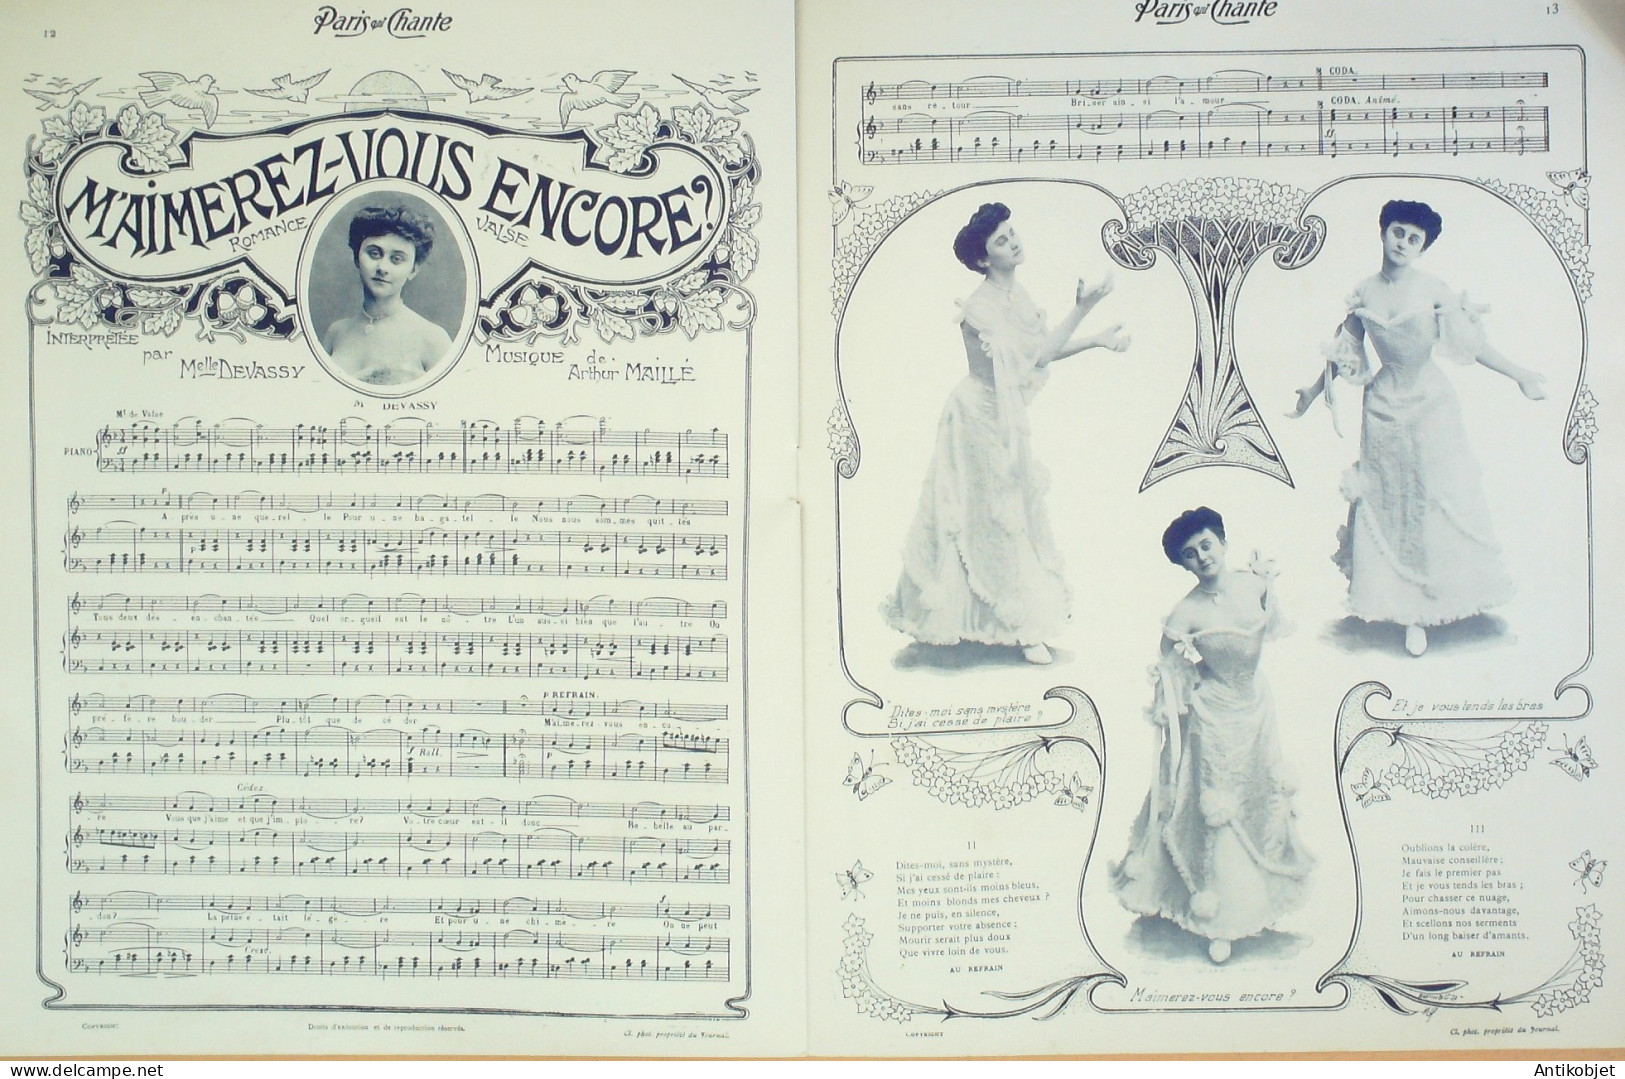 12
Paris qui Chante
M'AIMEREZ-VOUS ENCORE?
ROMANCE VALSE
INTERPRÉTÉE
par
Melle DEVASSY
MUSIQUE de
Arthur MAILLÉ
M DEVASSY
Mt de Valse
PIANO
A_près u_ne que_rel_ _le Pour u_ne ba_ga_tel_ _le Nous nous som_mes quit_tés
Tous deux dés_ _en_chan_tés Quel or_gueil est le nô_ _tre L'un aus_si bien que l'au_ _tre On
pré_fè_re bou_der Plu_tôt que de cé_der
P REFRAIN.
M'ai_me_rez_vous en_co_
f Rall.
Cédez
_re Vous que j'aime et que j'im_plo_ _re? Vo_tre cœur est_il donc Re_belle au par_
_don? La peine é_tait lé_gè_ _re Et pour u_ne chi_mè_ _re On ne peut
Cresc.
COPYRIGHT
Droits d'exécution et de reproduction réservés.
Cl. phot. propriété du Journal.
Paris qui Chante
13
CODA.
sans re_tour Bri_ser ain_si l'a_mour
CODA. Animé.
ff
Dites-moi sans mystère
Si j'ai cessé de plaire?
Et je vous tends les bras
II
Dites-moi, sans mystère,
Si j'ai cessé de plaire:
Mes yeux sont-ils moins bleus,
Et moins blonds mes cheveux?
Je ne puis, en silence,
Supporter votre absence;
Mourir serait plus doux
Que vivre loin de vous.
AU REFRAIN
III
Oublions la colère,
Mauvaise conseillère;
Je fais le premier pas
Et je vous tends les bras;
Pour chasser ce nuage,
Aimons-nous davantage,
Et scellons nos serments
D'un long baiser d'amants.
AU REFRAIN
M'aimerez-vous encore?
COPYRIGHT
Cl. phot. propriété du Journal.
Antikobjet